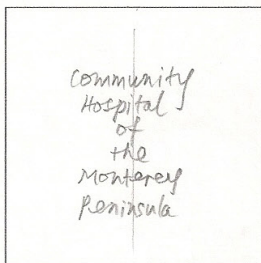 Community
Hospital
of
the
Monterey
Peninsula